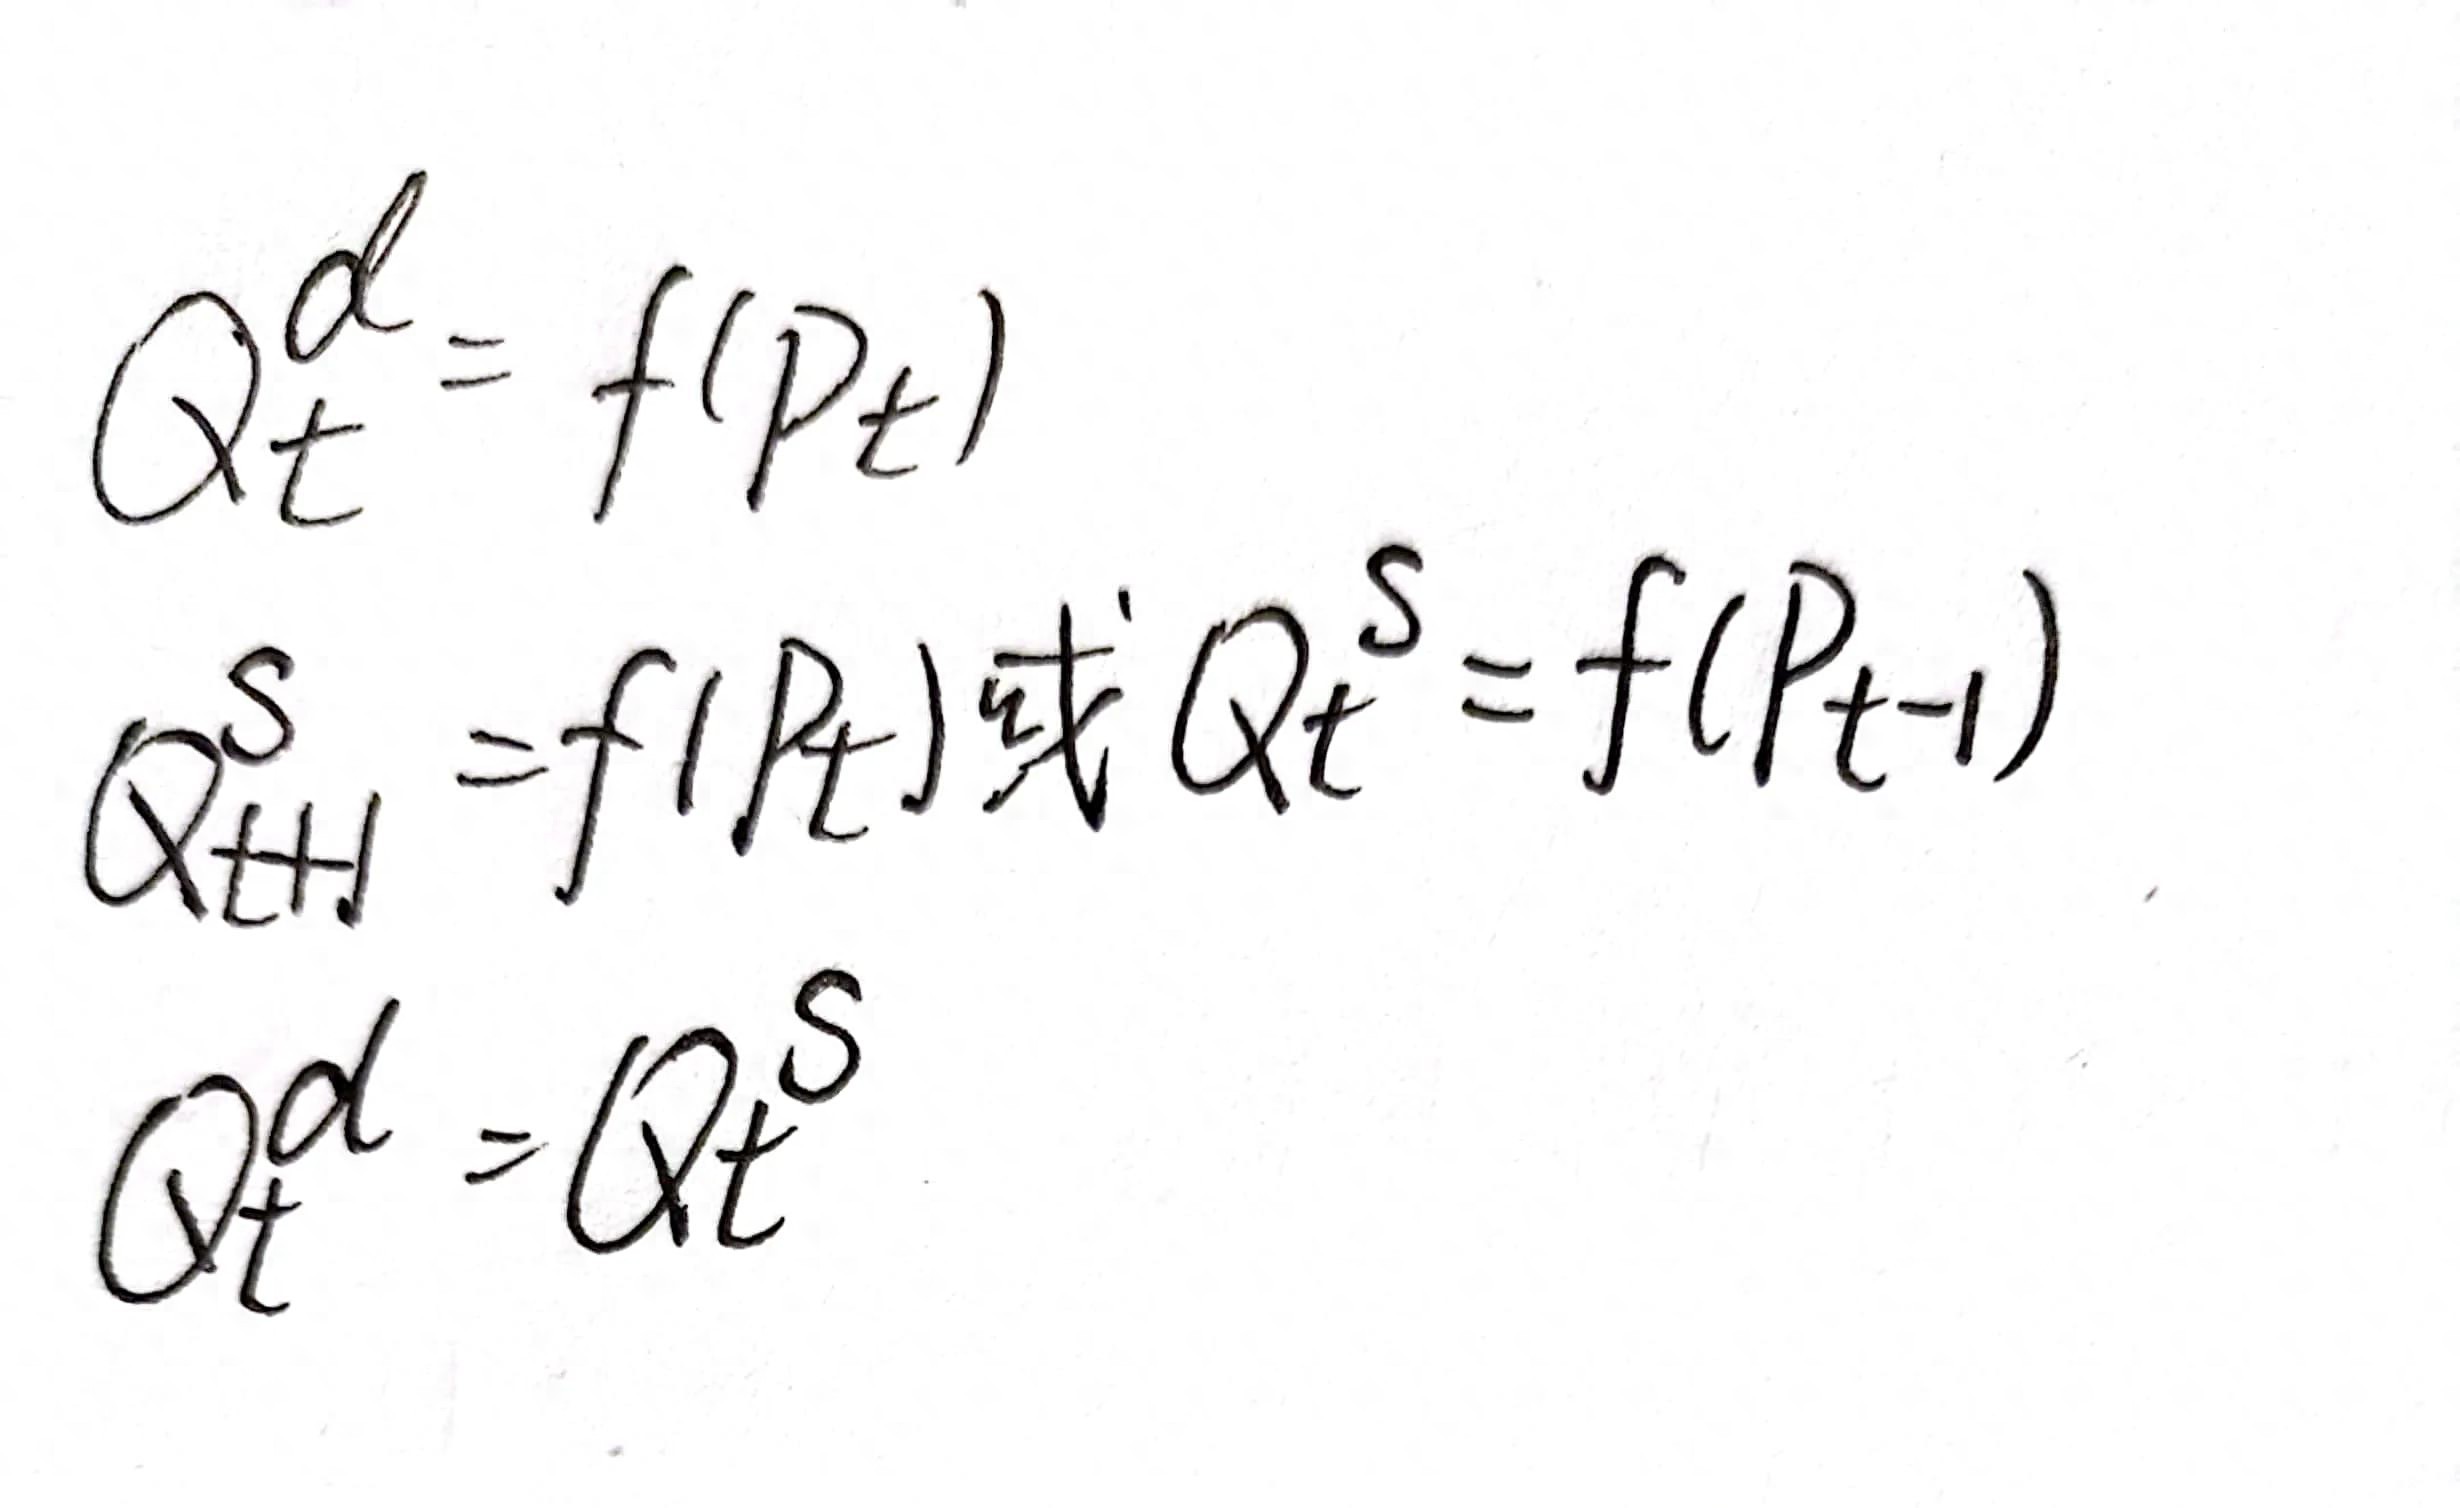 Q_t^d = f(P_t)
Q_{t+1}^s = f(P_t) 或 Q_t^s = f(P_{t-1})
Q_t^d = Q_t^s